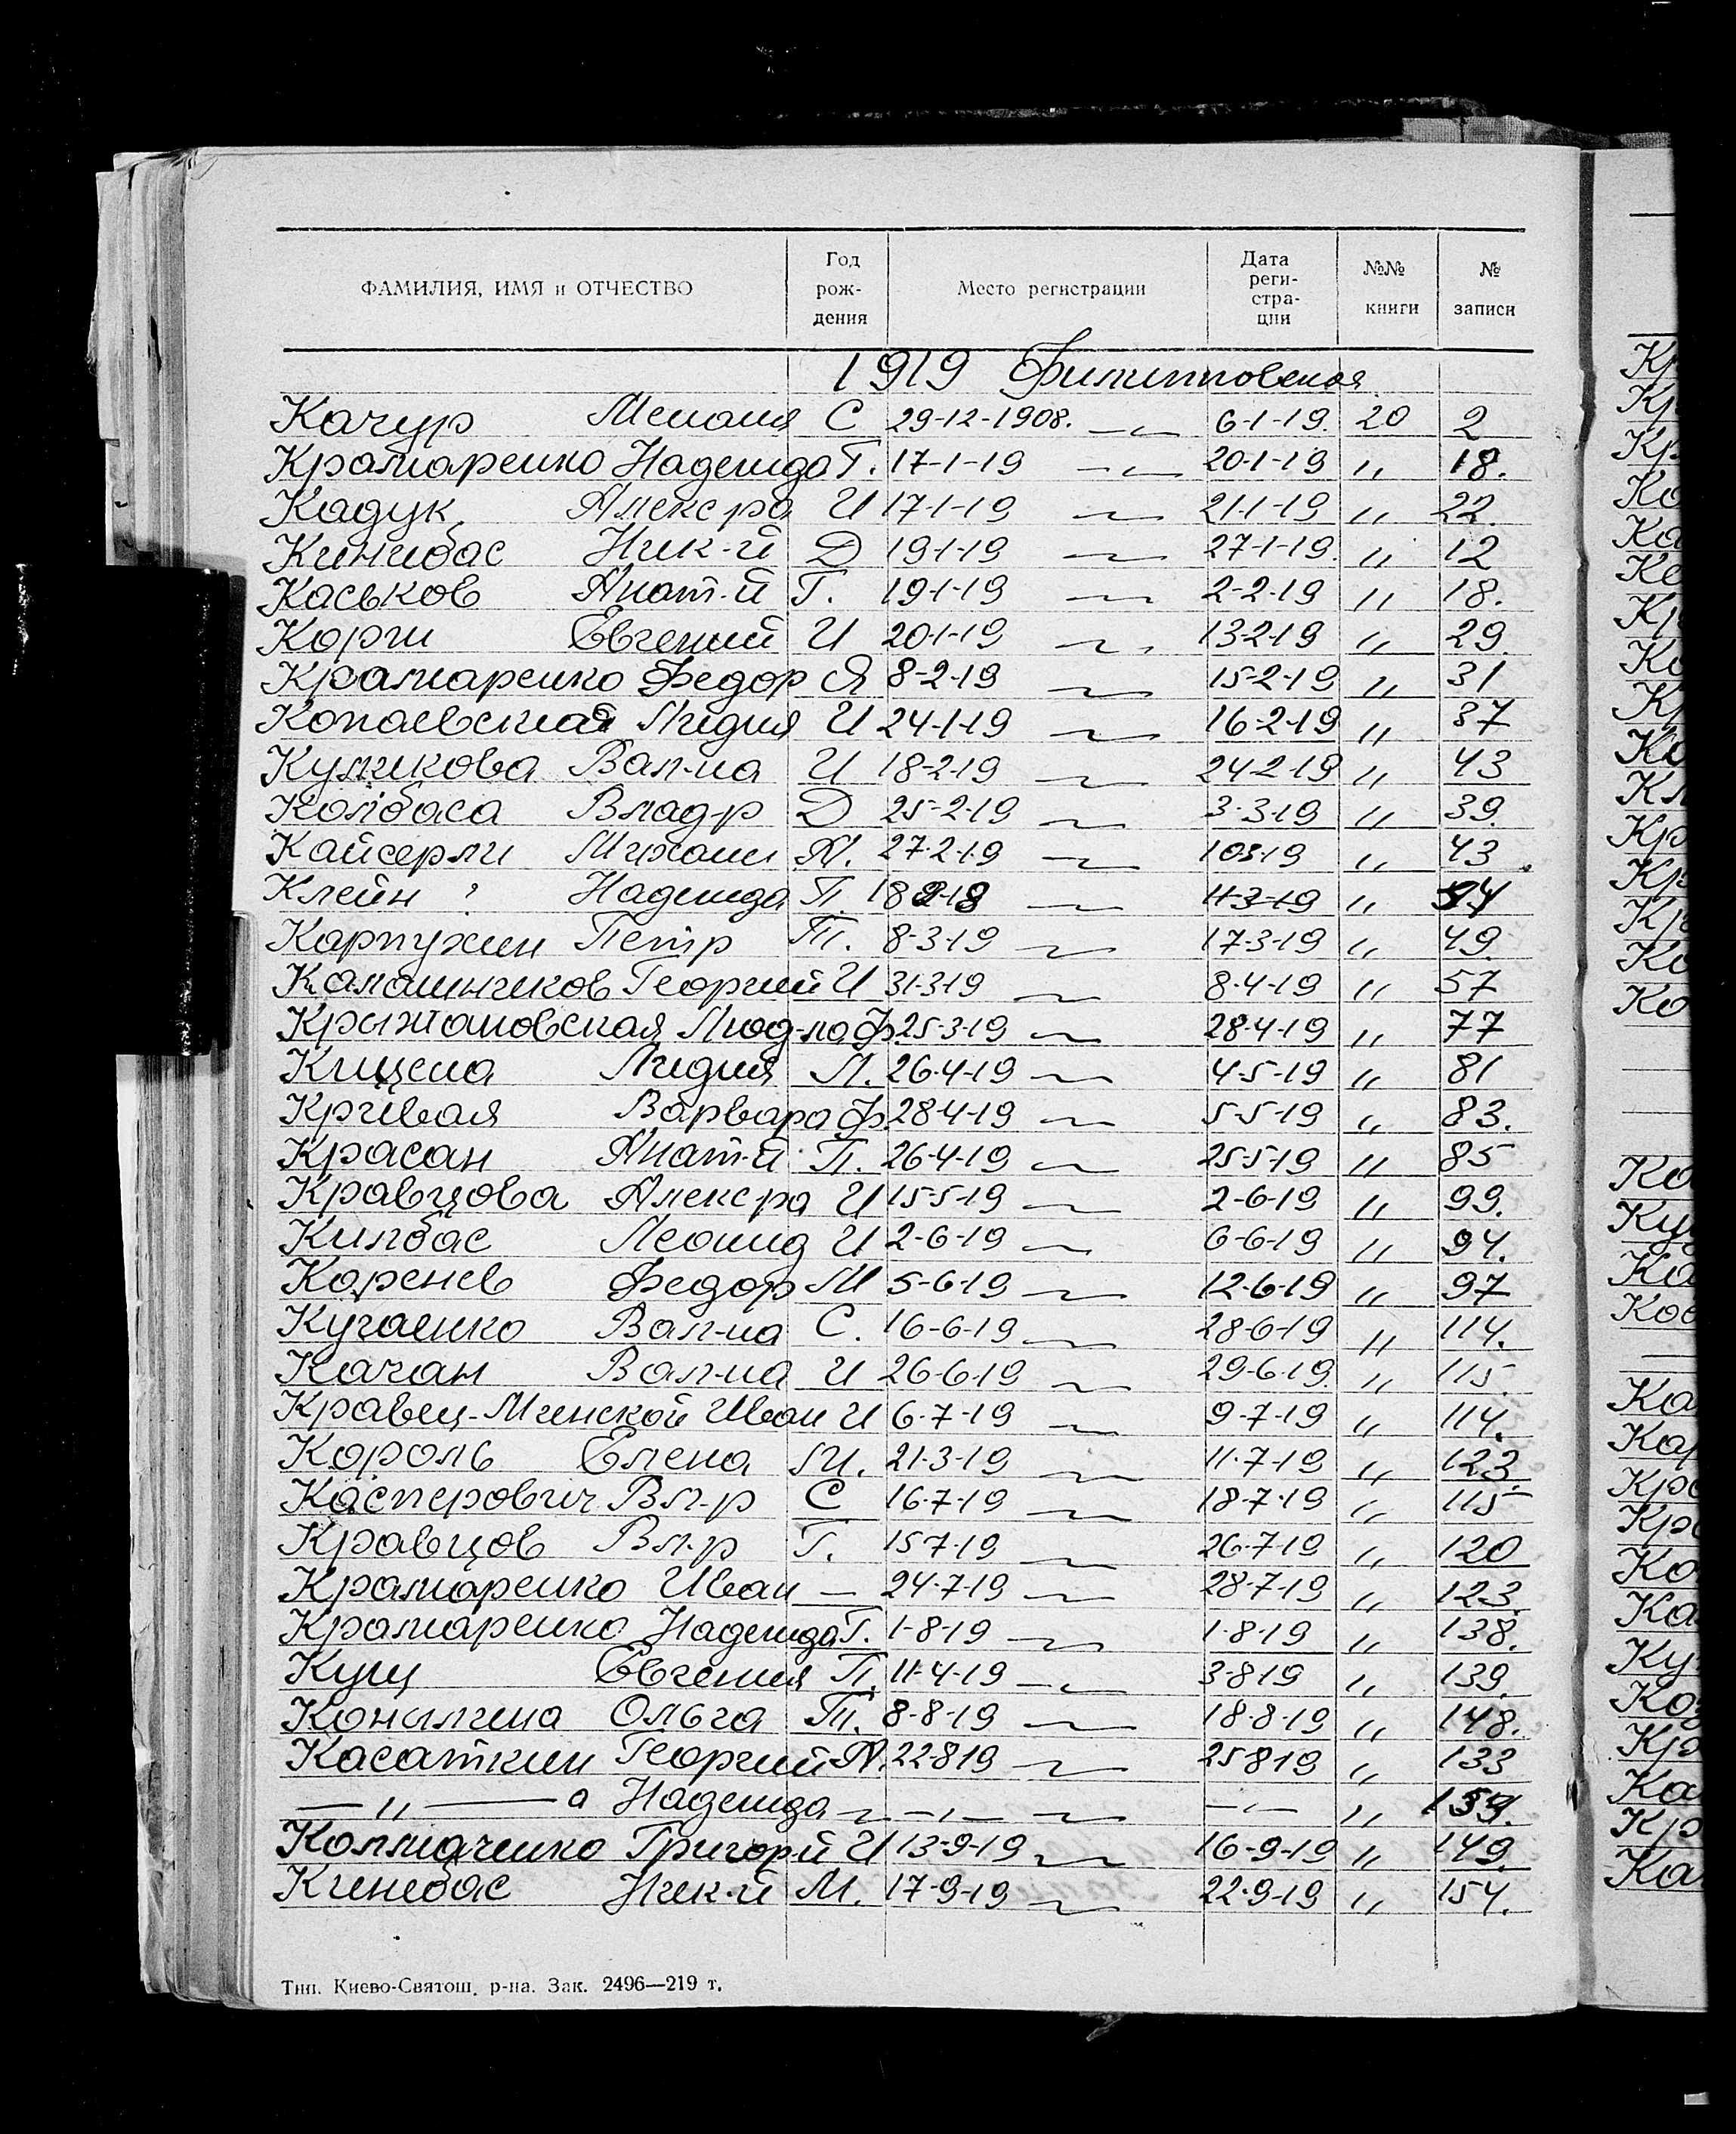 ФАМИЛИЯ, ИМЯ и ОТЧЕСТВО Год рож- дения Место регистрации Дата реги- стра- ции №№ книги № записи
1919 Филипповская
Качур Мелания С 29-12-1908. —"— 6-1-19. 20 2
Крамаренко Надежда Г. 17-1-19 —"— 20-1-19 " 18.
Кадук Алекс ра И 17-1-19 — 21-1-19 " 22.
Кинибас Ник-й Д 19-1-19 — 27-1-19. " 12
Каськов Анат-й Г. 19-1-19 — 2-2-19 " 18.
Корги Евгений И 20-1-19 — 13-2-19 " 29.
Крамаренко Федор Я 8-2-19 — 15-2-19 " 31
Копаевская Лидия И 24-1-19 — 16-2-19 " 37
Куликова Вал-на И 18-2-19 — 24-2-19 " 43
Колбаса Влад-р Д 25-2-19 — 3-3-19 " 39.
Кайсерли Михаил А. 27-2-19 — 10-3-19 " 43
Клейн ? Надежда П. 18 — 11-3-19 "
Карпухин Петр Т. 8-3-19 — 17-3-19 " 49.
Калашников Георгий И 31-3-19 — 8-4-19 " 57
Крыжановская Люд-ла Ф. 25-3-19 — 28-4-19 " 77
Кицена Лидия Л. 26-4-19 — 4-5-19 " 81
Кривая Варвара Ф. 28-4-19 — 5-5-19 " 83.
Красан Анат-й П. 26-4-19 — 25-5-19 " 85
Кравцова Алекс ра И 15-5-19 — 2-6-19 " 99.
Килбас Леонид И 2-6-19 — 6-6-19 " 94.
Коренев Федор М 5-6-19 — 12-6-19 " 97
Кучаенко Вал-на С. 16-6-19 — 28-6-19 " 114.
Качан Вал-на И 26-6-19 — 29-6-19. " 115.
Кравец-Минской Иван И 6-7-19 — 9-7-19 " 114.
Король Елена М. 21-3-19 — 11-7-19 " 123.
Касперович Вл-р С 16-7-19 — 18-7-19 " 115
Кравцов Вл-р Г. 15 7-19 — 26-7-19 " 120
Крамаренко Иван — 24-7-19 — 28-7-19 " 123.
Крамаренко Надежда Г. 1-8-19 — 1-8-19 " 138.
Кущ Евгения П. 11-4-19 —"— 3-8 19 " 139.
Конылина Ольга Т. 8-8-19 — 18-8-19 " 148.
Касаткин Георгий А. 22 8 19 — 25 8 19 " 133
—"— а Надежда — —"— — —"— " 159.
Колмаченко Григорий И 13-9-19 — 16-9-19 " 149.
Кинебас Ник-й М. 17-9-19 — 22-9-19 " 154.
Тип. Киево-Святош. р-на. Зак. 2496—219 т.